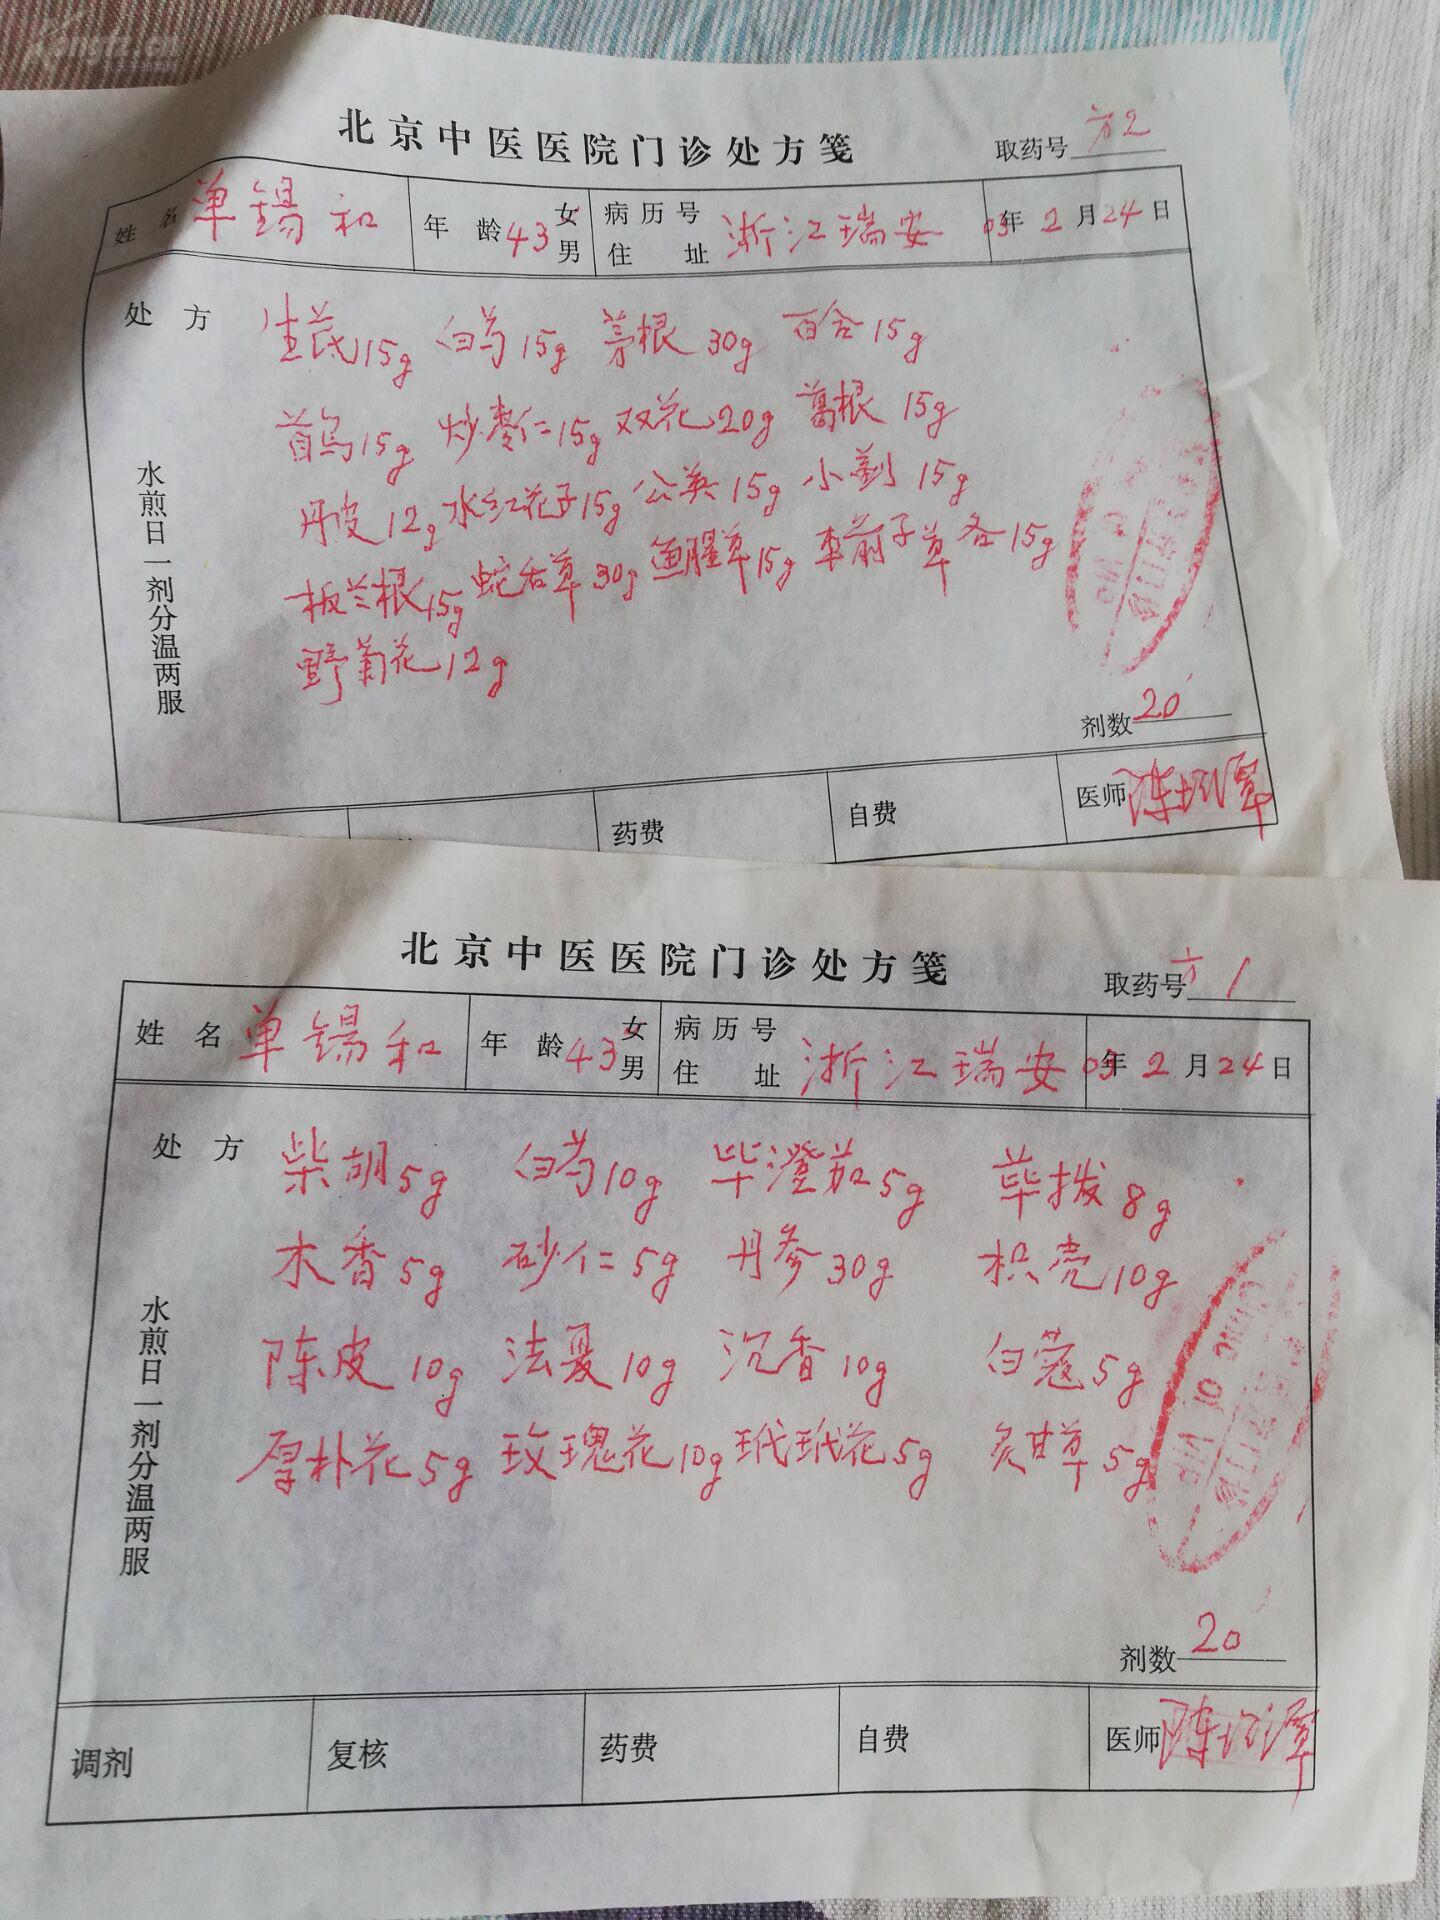 北京中医医院门诊处方笺 取药号 方2
姓名 单锡和 年龄 43 女 男 病历号 住址 浙江瑞安 03年2月24日
处方
生芪15g 白芍15g 茅根30g 百合15g
首乌15g 炒枣仁15g 双花20g 葛根15g
丹皮12g 水红花子15g 公英15g 小蓟15g
板兰根15g 蛇舌草30g 鱼腥草15g 车前子草各15g
野菊花12g
水煎日一剂分温两服
剂数 20
药费 自费 医师 陈
北京中医医院门诊处方笺 取药号 方1
姓名 单锡和 年龄 43 女 男 病历号 住址 浙江瑞安 03年2月24日
处方
柴胡5g 白芍10g 毕澄茄5g 荜拨8g
木香5g 砂仁5g 丹参30g 枳壳10g
陈皮10g 法夏10g 沉香10g 白蔻5g
厚朴花5g 玫瑰花10g 玳玳花5g 炙甘草5g
水煎日一剂分温两服
剂数 20
调剂 复核 药费 自费 医师 陈